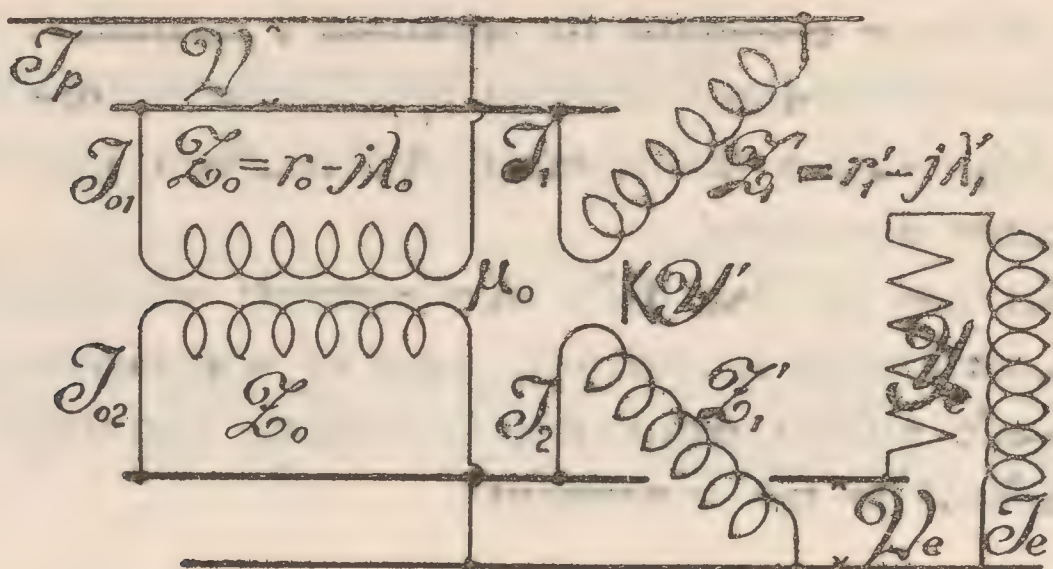 I_p V
I_01 Z_0 = r_0 - jλ_0 I_1 Z_1' = r_1' - jλ_1'
μ_0 K V'
I_02 Z_0 I_2 Z_1' Y
V_e I_e